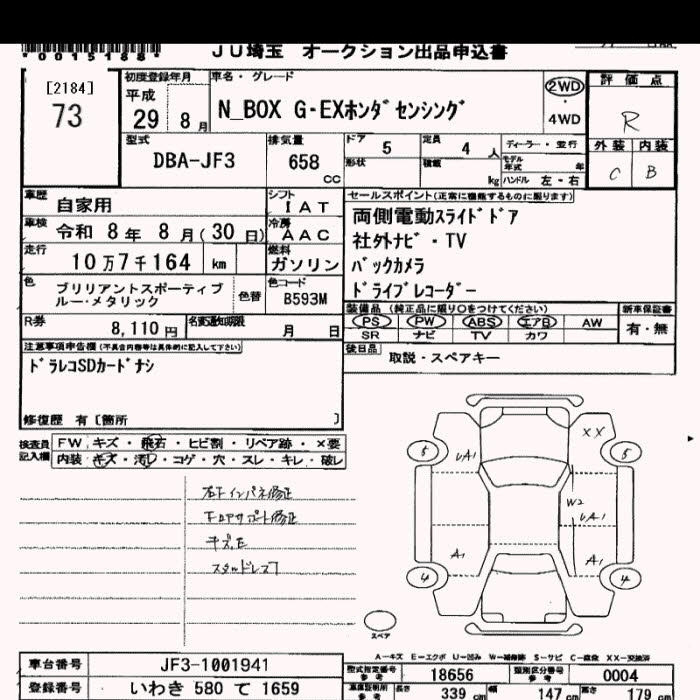 *0015188*
JU埼玉 オークション出品申込書
[2184]
73
初度登録年月
平成
29 8 月
車名・グレード
N_BOX G-EXホンダセンシング
2WD
・
4WD
評価点
R
外装 内装
C B
型式
DBA-JF3
排気量
658
cc
ドア 5
定員 4 人
形状
積載 kg
ディーラー・並行
モデル年式 年
ハンドル 左・右
車歴
自家用
シフト
IAT
車検
令和 8年 8月(30日)
冷房
AAC
走行
10万7千164 km
燃料
ガソリン
色
ブリリアントスポーティブ
ルー・メタリック
色替
色コード
B593M
R券
8,110円
名変通知期限
月 日
セールスポイント(正常に機能するものに限ります)
両側電動スライドドア
社外ナビ・TV
バックカメラ
ドライブレコーダー
装備品 (純正品に限り○をつけてください)
PS PW ABS エアB AW
SR ナビ TV カワ
新車保証書
有・無
後日品
取説・スペアキー
注意事項申告欄(不具合内容等は具体的に記入して下さい)
ドラレコSDカードナシ
修復歴 有〔箇所 〕
検査員
記入欄
FW キズ・飛石・ヒビ割・リペア跡・×要
内装 キズ・汚レ・コゲ・穴・スレ・キレ・破レ
右下インパネ修正
下コアサポート修正
キズ、E
5 UA1 XX 5
W2
UA1
4 A1 A1 4
スペア
A−キズ E−エクボ U−凹み W−補修跡 S−サビ C−腐蝕 XX−交換済
車台番号
JF3-1001941
登録番号
いわき 580 て 1659
型式指定番号
参考
18656
類別区分番号
参考
0004
車庫証明用
参考
長さ 339 cm
幅 147 cm
高さ 179 cm